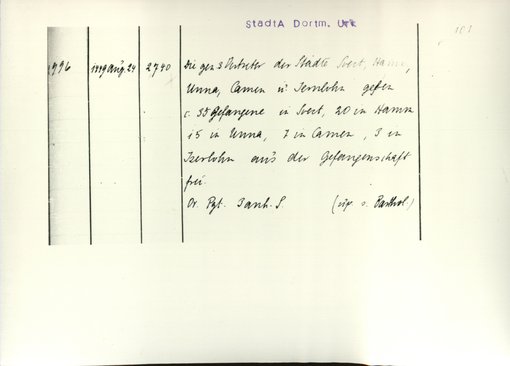 StadtA Dortm. Urk
101
996 1449 Aug. 24 2740 Die gen 3 Vertreter der Städte Soest, Hamm,
Unna, Camen u Iserlohn geben
c. 55 Gefangene in Soest, 20 in Hamm
15 in Unna, 7 in Camen, 3 in
Iserlohn aus der Gefangenschaft
frei.
Or. Pgt. Sanh. S. (up. s. Barthol.)